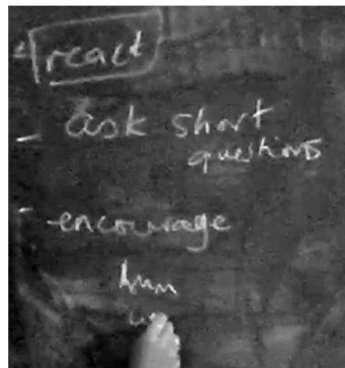 react
- ask short
questions
- encourage
hmm